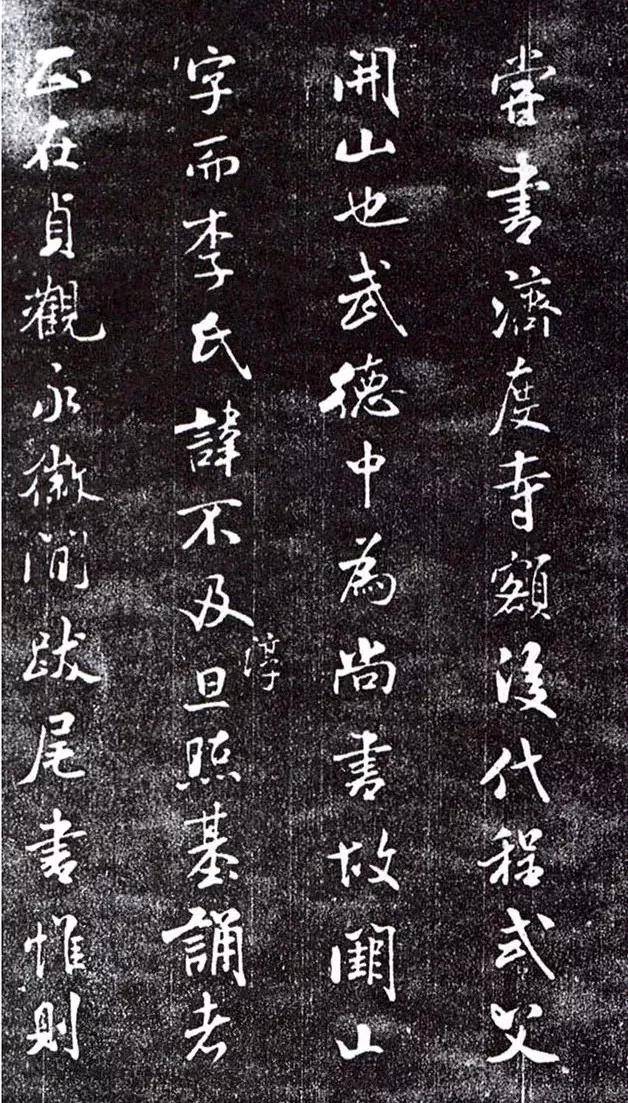 嘗書濟度寺額後代程式父
開山也武德中為尚書故闕山
字而李氏諱不及淳旦照基誦者
正在貞觀永徽間跋尾書惟則